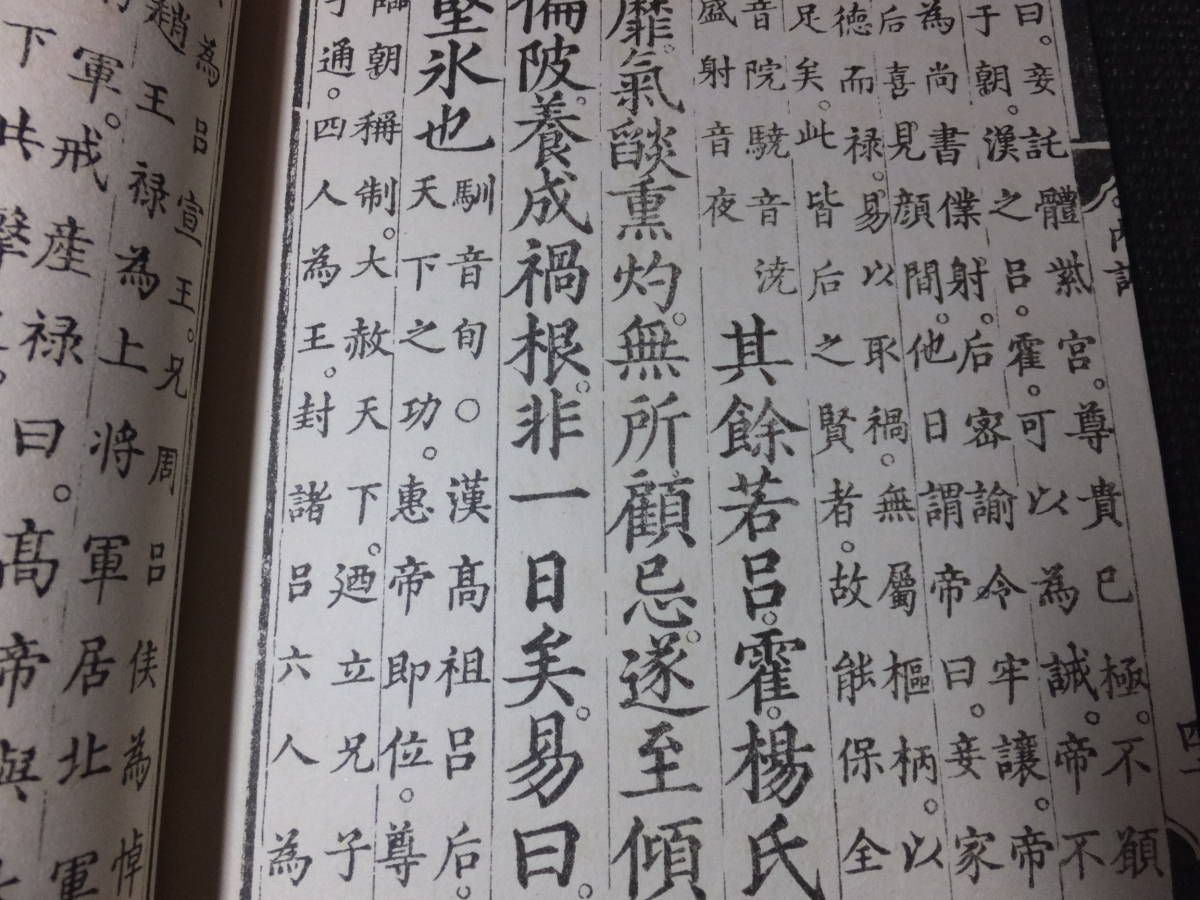 內訓
曰。妾託體紫宮。尊貴已極。不願
于朝。漢之呂。霍。可以為誡。帝不
為尚書僕射。后密諭令牢讓。帝
后喜見顏間。他日謂帝曰。妾家
德而祿。易以取禍。無屬樞柄。以
足矣。此皆后之賢者。故能保全
音院驍音澆
盛射音夜
其餘若呂。霍。楊氏
靡。氣燄熏灼。無所顧忌。遂至傾
偏陂。養成禍根。非一日矣。易曰。
堅氷也
馴音旬○漢高祖呂后。
天下之功。惠帝即位。尊
臨朝稱制。大赦天下。迺立兄子
通。四人為王。封諸呂六人為
為呂宣王。兄周呂侯為悼
趙王祿為上將軍居北軍
軍。戒產祿曰。高帝與
下共擊